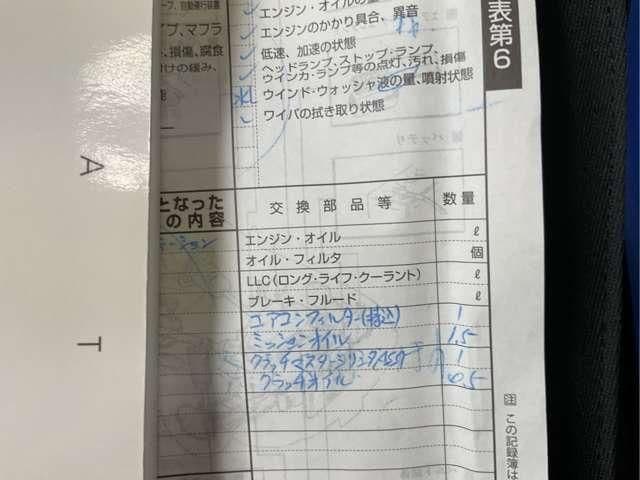 ープ、自動運行装置
プ、マフラ
、損傷、腐食
付けの緩み、
エンジン・オイルの量
エンジンのかかり具合、異音
低速、加速の状態
ヘッドランプ、ストップ・ランプ、
ウインカ・ランプ等の点灯、汚れ、損傷
ウインド・ウォッシャ液の量、噴射状態
ワイパの拭き取り状態
表第6
A
T
となった
の内容
交換部品等 数量
エンジン・オイル ℓ
オイル・フィルタ 個
LLC(ロング・ライフ・クーラント) ℓ
ブレーキ・フルード ℓ
エアコンフィルター(持込) 1
ミッションオイル 1.5
クラッチマスターシリンダASSY 1
クラッチオイル 0.5
注 この記録簿は